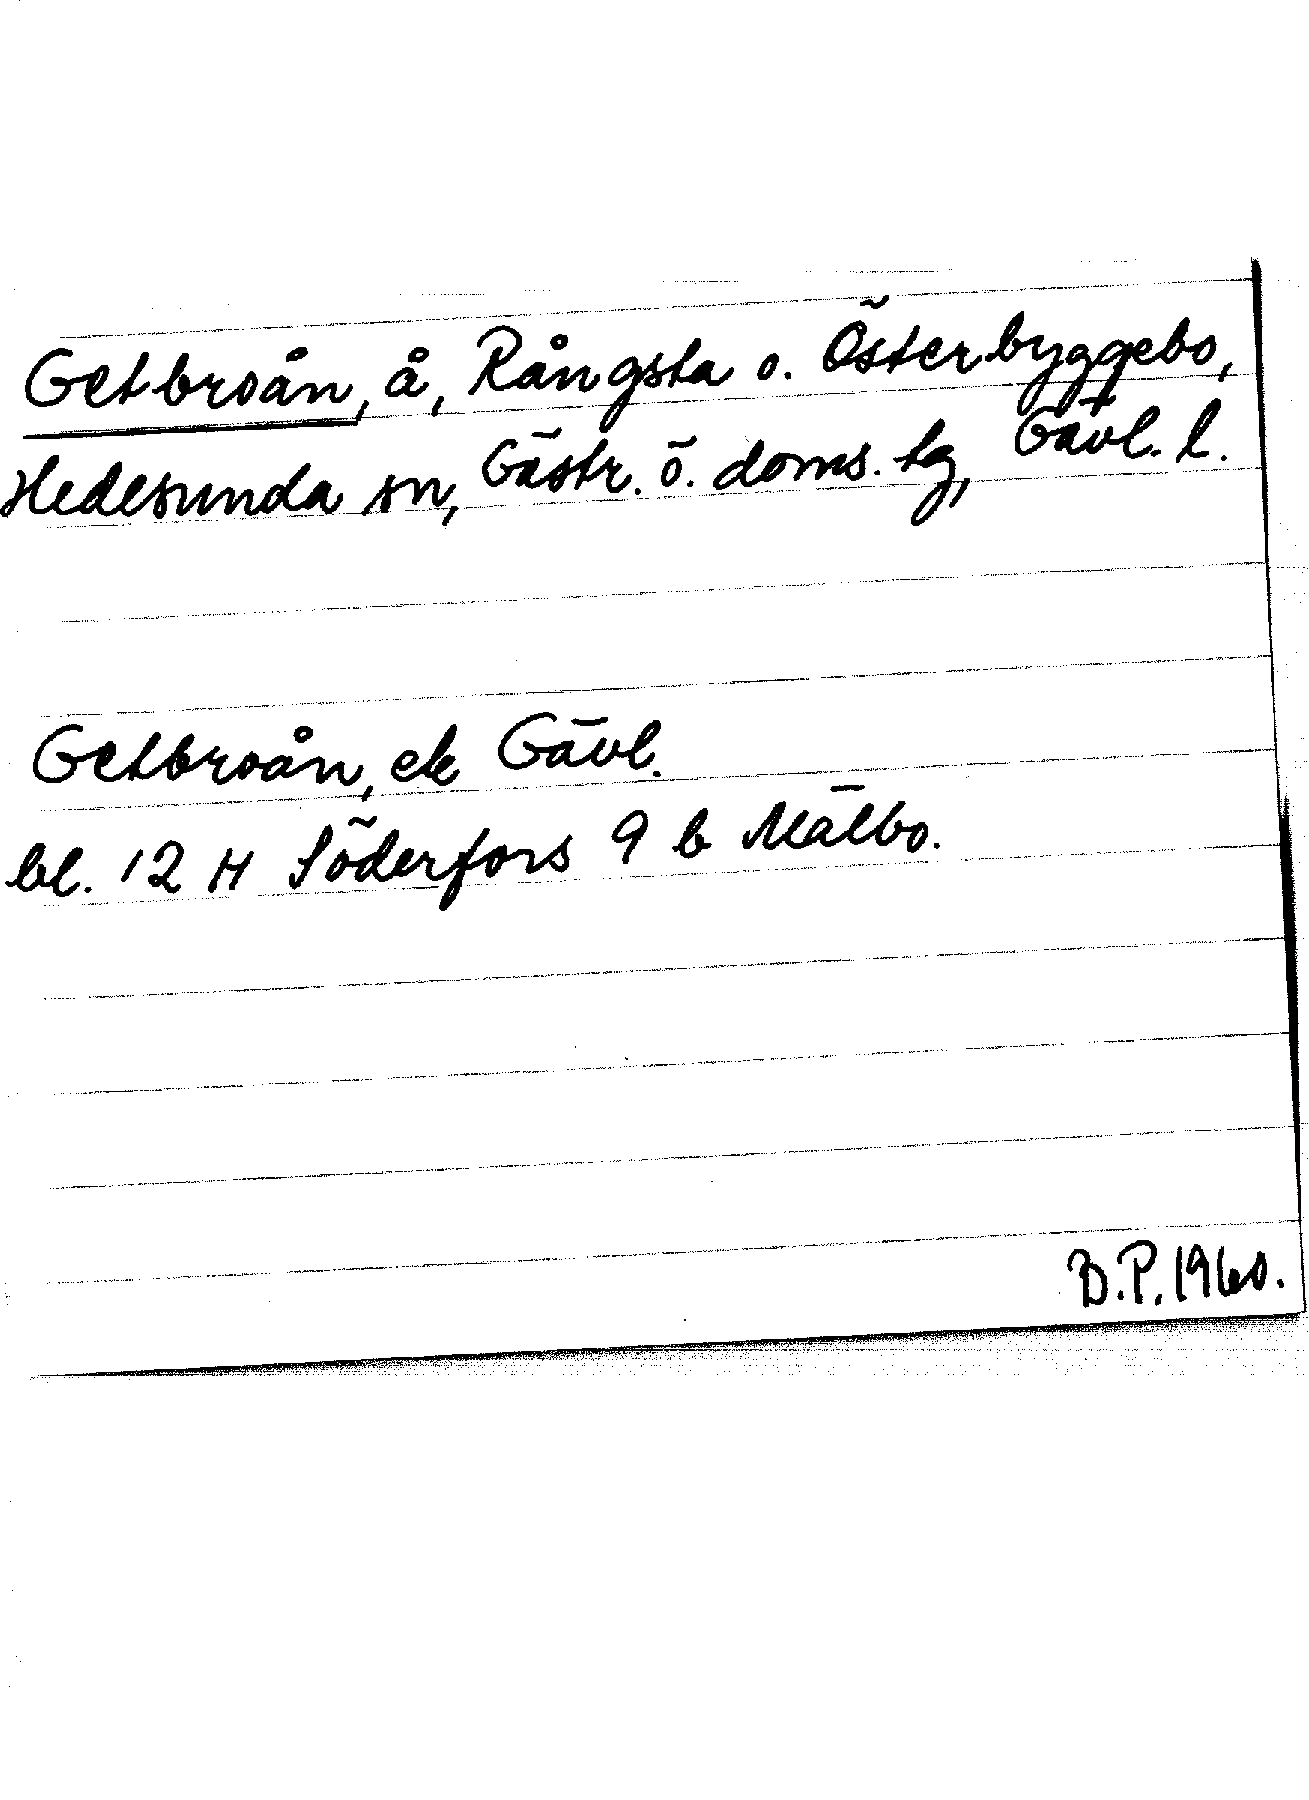 Getbroån, å, Rångsta o. Österbyggebo,
Hedesunda sn, Gästr. ö. doms. tg, Gävl. l.
Getbroån, ek Gävl.
bl. 12 H Söderfors 9 b Mälbo.
B.P. 1960.